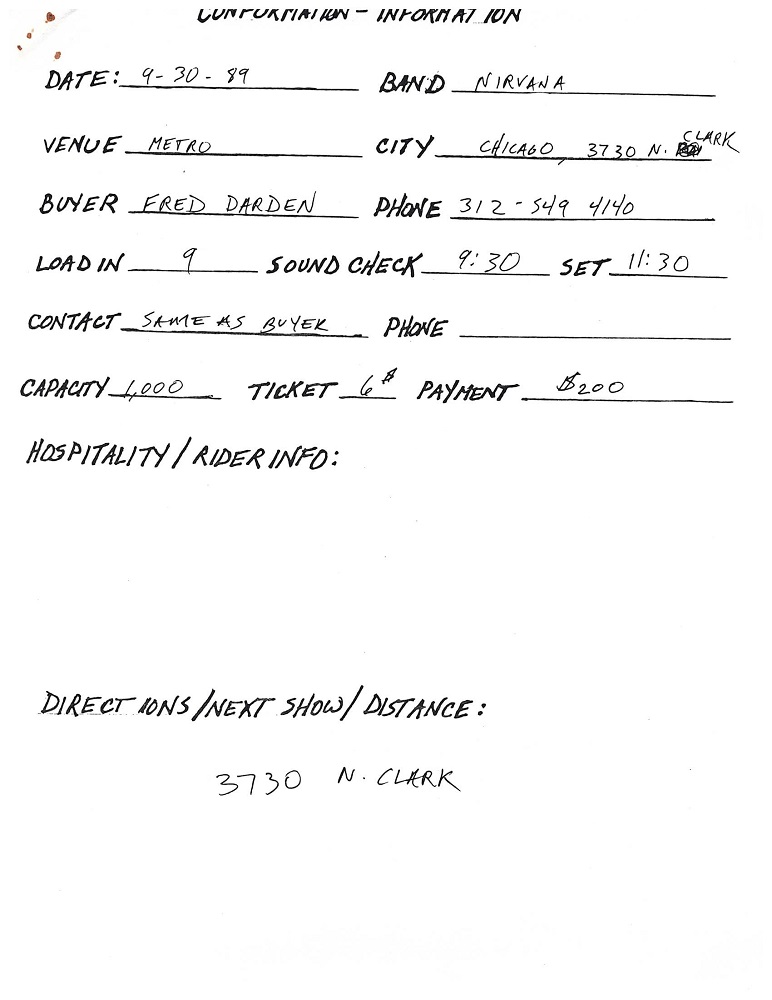 CONFORMATION - INFORMATION
DATE: 9-30-89 BAND NIRVANA
VENUE METRO CITY CHICAGO, 3730 N. CLARK
BUYER FRED DARDEN PHONE 312-549 4140
LOAD IN 9 SOUND CHECK 9:30 SET 11:30
CONTACT SAME AS BUYER PHONE
CAPACITY 1,000 TICKET 6$ PAYMENT $200
HOSPITALITY / RIDER INFO:
DIRECTIONS/NEXT SHOW/DISTANCE:
3730 N. CLARK